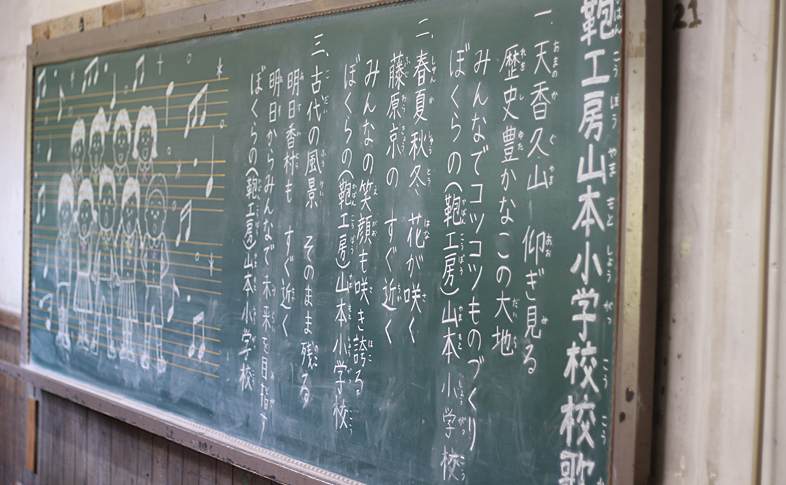 鞄工房山本小学校校歌
一、天香久山 仰ぎ見る
歴史豊かなこの大地
みんなでコツコツものづくり
ぼくらの(鞄工房)山本小学校
二、春夏秋冬 花が咲く
藤原京の すぐ近く
みんなの笑顔も咲き誇る
ぼくらの(鞄工房)山本小学校
三、古代の風景 そのまま残る
明日香村も すぐ近く
明日からみんなで未来を目指す
ぼくらの(鞄工房)山本小学校
21